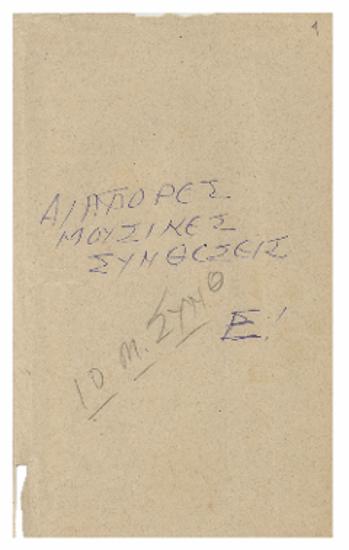 1
ΔΙΑΦΟΡΕΣ
ΜΟΥΣΙΚΕΣ
ΣΥΝΘΕΣΕΙΣ
Ε!
10 Μ. ΣΥΝΘ